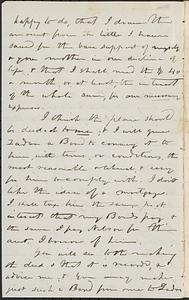 happy to do, that I draw the
amount from the little I have
saved for the bare support of myself
& your mother in our decline of
life, & that I shall need the $40
a month or at least, the interest
of the whole sum, for our necessary
expenses
I think the place should
be deeded to me, & I will give
a Bond to convey it to
him, with terms, or conditions, the
most reasonable & liberal & easy
for him to comply with. I don't
like the idea of a mortgage.
I shall tax him the same per
interest that my Bonds pay &
the same I pay Nelson for the
amt. I borrow of him.
You will see to the making
the deed & that it is recorded, and
advise me, &
just such a Bond from me to